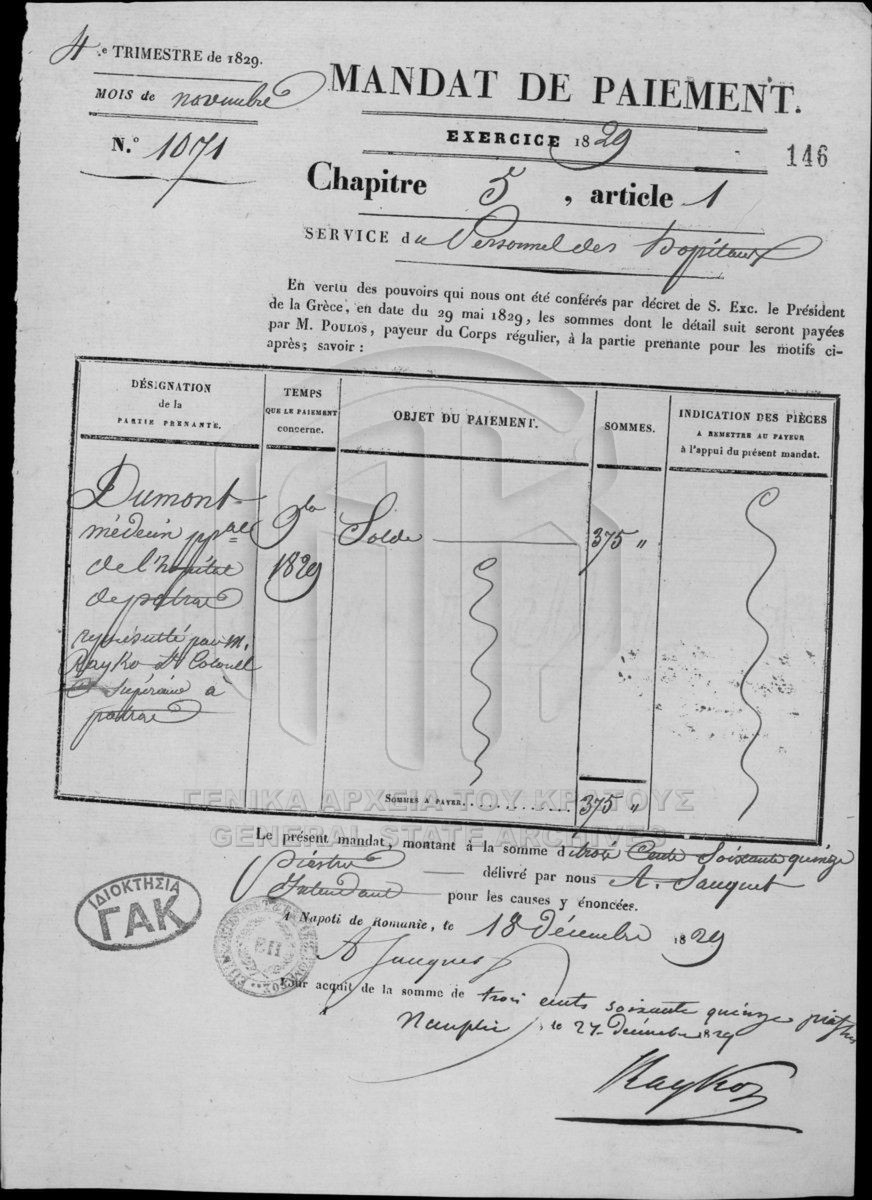 4.e TRIMESTRE de 1829.
MOIS de novembre
N.o 1071
MANDAT DE PAIEMENT.
EXERCICE 1829
146
Chapitre 5, article 1
SERVICE du Personnel des hopitaux
En vertu des pouvoirs qui nous ont été conférés par décret de S. Exc. le Président
de la Grèce, en date du 29 mai 1829, les sommes dont le détail suit seront payées
par M. POULOS, payeur du Corps régulier, à la partie prenante pour les motifs ci-
après; savoir :
DÉSIGNATION
de la
PARTIE PRENANTE.
TEMPS
QUE LE PAIEMENT
concerne.
OBJET DU PAIEMENT.
SOMMES.
INDICATION DES PIÈCES
A REMETTRE AU PAYEUR
à l'appui du présent mandat.
Dumont
médecin ppal
de l'hopital
de patras
représenté par M.
Rayko Lt Colonel
Supérieur à
patras
9bre
1829
Solde
375 "
SOMMES A PAYER
375 "
ΓΕΝΙΚΑ ΑΡΧΕΙΑ ΤΟΥ ΚΡΑΤΟΥΣ
GENERAL STATE ARCHIVES
Le présent mandat, montant à la somme de trois Cents Soixante quinze
Piastres délivré par nous A. Jauguet
Intendant pour les causes y énoncées.
A Napoli de Romanie, le 18 décembre 1829
ΙΔΙΟΚΤΗΣΙΑ
ΓΑΚ
Pour acquit de la somme de trois cents soixante quinze piastres
Nauplie, le 27 décembre 1829
Rayko